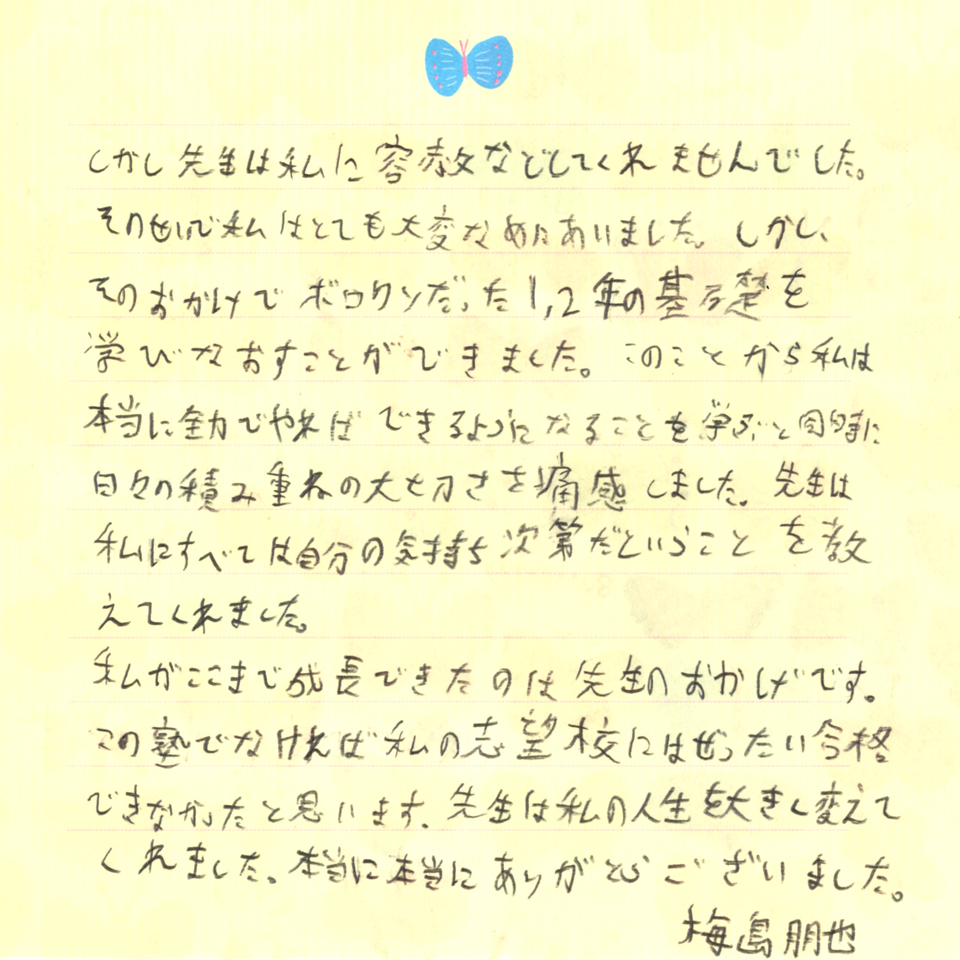 しかし先生は私に容赦などしてくれませんでした。
そのせいで私はとても大変なめにあいました。しかし、
そのおかげでボロクソだった1,2年の基礎を
学びなおすことができました。このことから私は
本当に全力でやればできるようになることを学ぶと同時に
日々の積み重ねの大切さを痛感しました。先生は
私にすべては自分の気持ち次第だということを教
えてくれました。
私がここまで成長できたのは先生のおかげです。
この塾でなければ私の志望校にはぜったい合格
できなかったと思います。先生は私の人生を大きく変えて
くれました。本当に本当にありがとうございました。
梅島朋也